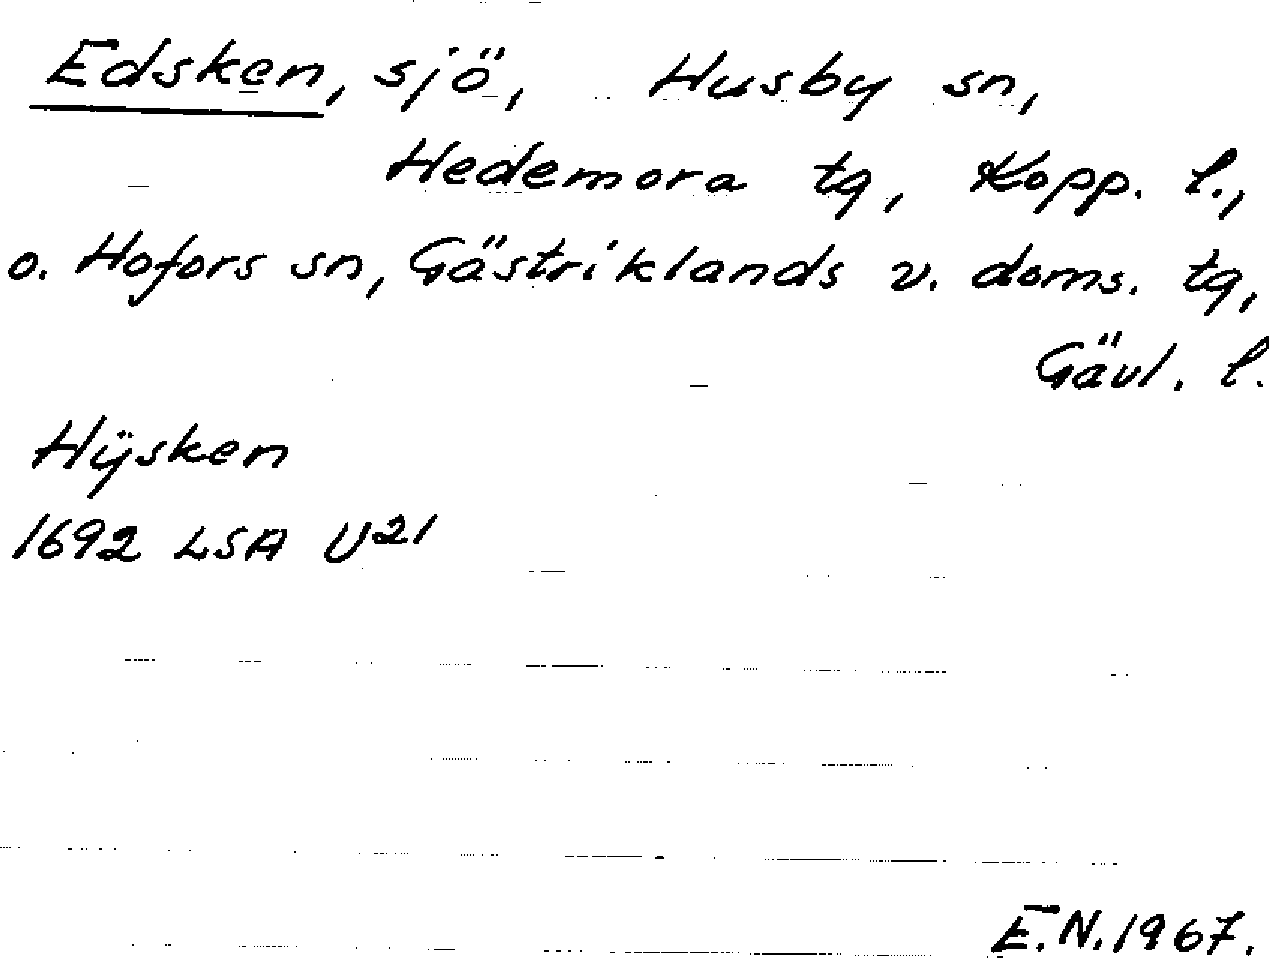 Edsken, sjö, Husby sn,
Hedemora tg, Kopp. l.,
o. Hofors sn, Gästriklands v. doms. tg,
Gävl. l.
Hÿsken
1692 LSA U21
E.N. 1967.